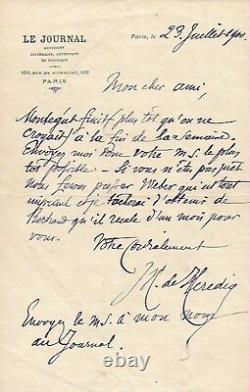 LE JOURNAL
QUOTIDIEN
LITTÉRAIRE, ARTISTIQUE
ET POLITIQUE
100, RUE DE RICHELIEU, 100
PARIS
Paris, le 23 Juillet 1900.
Mon cher ami,
finit plus tôt qu'on ne
croyait à la fin de la semaine.
Envoyez moi donc votre m.s. le plus
tôt possible. Si vous n'êtes pas prêt
nous ferons passer Weber qui est tout
imprimé et je tâcherai d'obtenir de
Bertrand qu'il recule d'un mois pour
vous.
Votre Cordialement
de Heredia
Envoyez le m.s. à mon nom
au Journal.